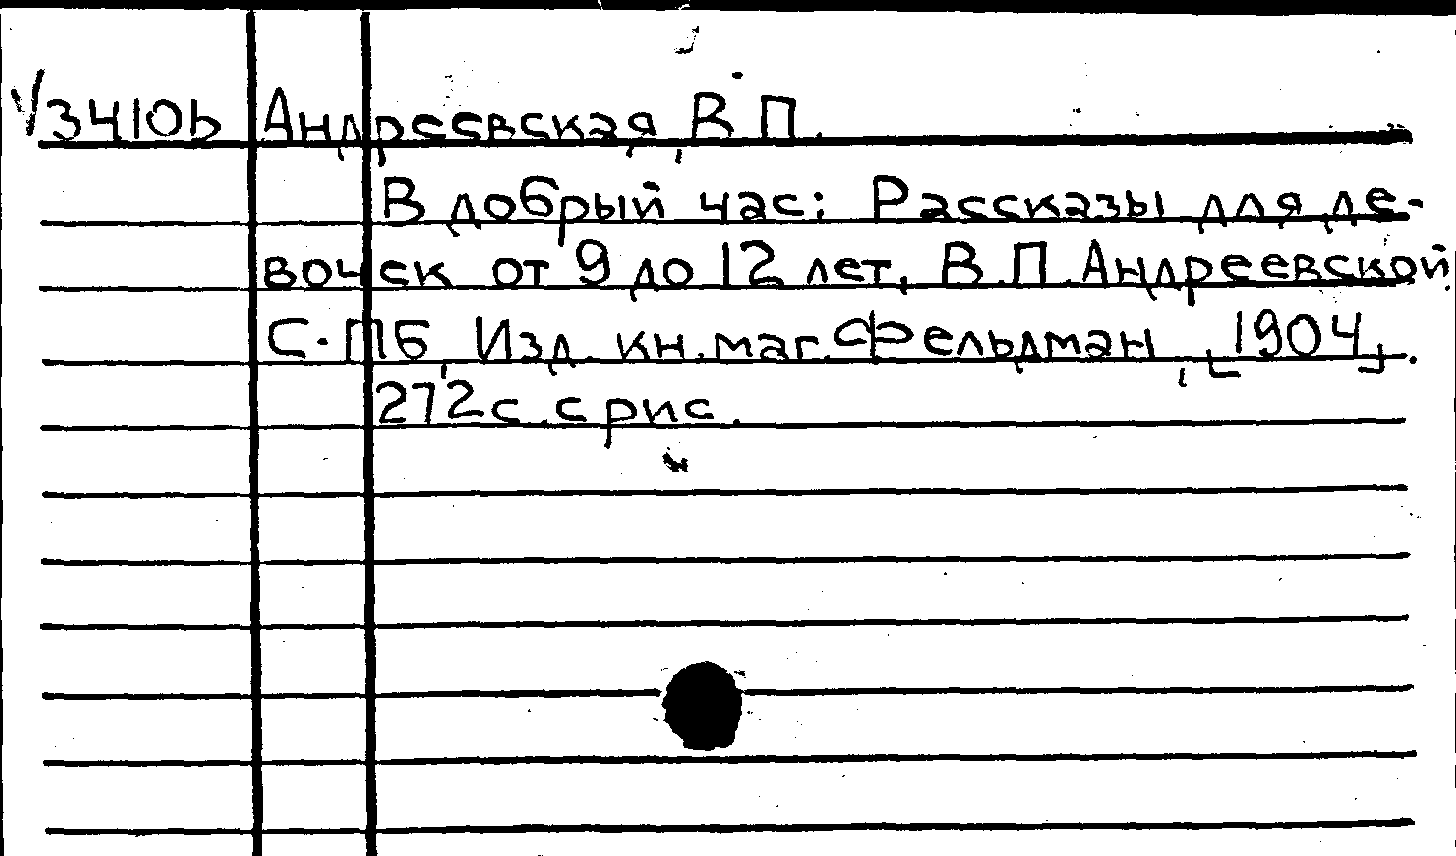 √3410b Андреевская, В.П.
В добрый час: Рассказы для де-
вочек от 9 до 12 лет, В.П.Андреевской.
С.-ПБ, Изд. кн. маг. Фельдман, [1904].
272с. с рис.